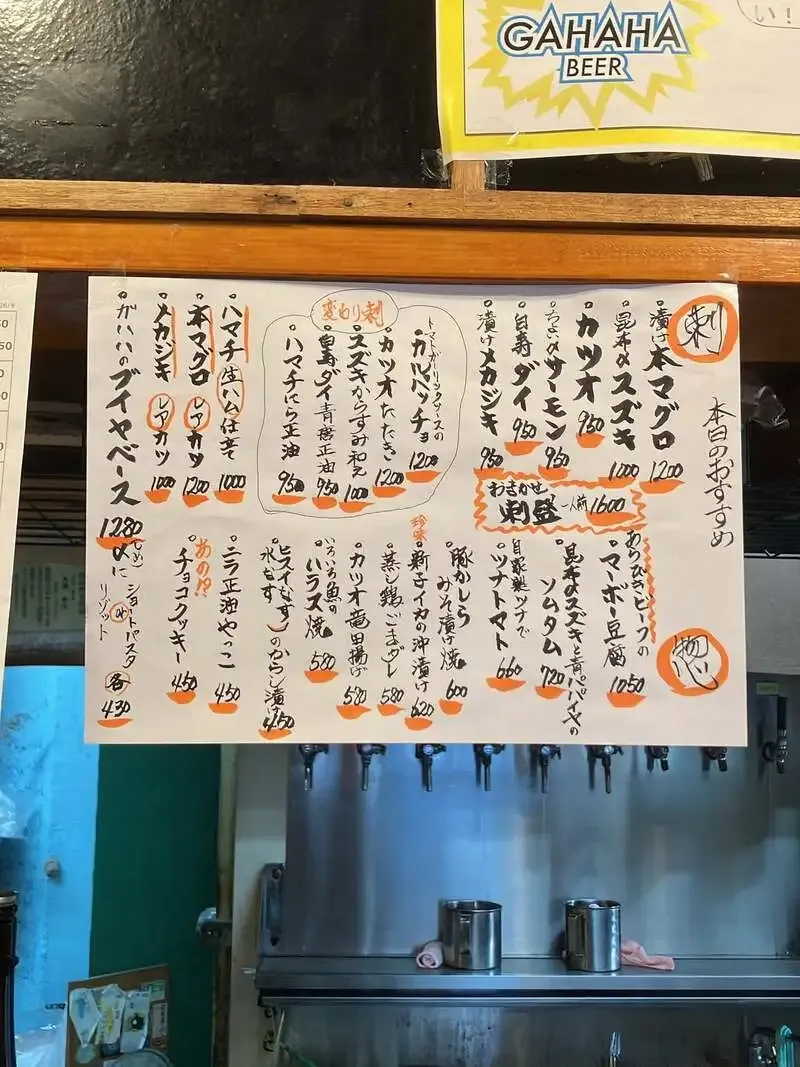 い!
GAHAHA
BEER
本日のおすすめ
刺
漬け本マグロ 1200
昆布〆スズキ 1000
カツオ 950
ちょい〆サーモン 950
白寿ダイ 950
漬けメカジキ 950
おまかせ
刺盛 一人前 1600
変わり刺
トマトガーリックソースの
カルパッチョ 1200
カツオたたき 1200
スズキからすみ和え 1000
白寿ダイ青唐正油 950
ハマチにら正油 950
ハマチ生ハム仕立て 1000
本マグロレアカツ 1200
メカジキレアカツ 1000
ガハハのブイヤベース 1280
〆に(しめ) ショートパスタ
リゾット
各430
惣
あらびきビーフの
マーボー豆腐 1050
昆布〆スズキと青パパイヤの
ソムタム 720
自家製ツナで
ツナトマト 660
豚かしら
みそ漬け焼 600
珍味
新子イカの沖漬け 620
蒸し鶏ごまダレ 580
カツオ竜田揚げ 580
いろいろ魚の
ハラス焼 580
ヒスイなす
水なす
のからし漬け 450
ニラ正油やっこ 450
あの!?
チョコクッキー 450